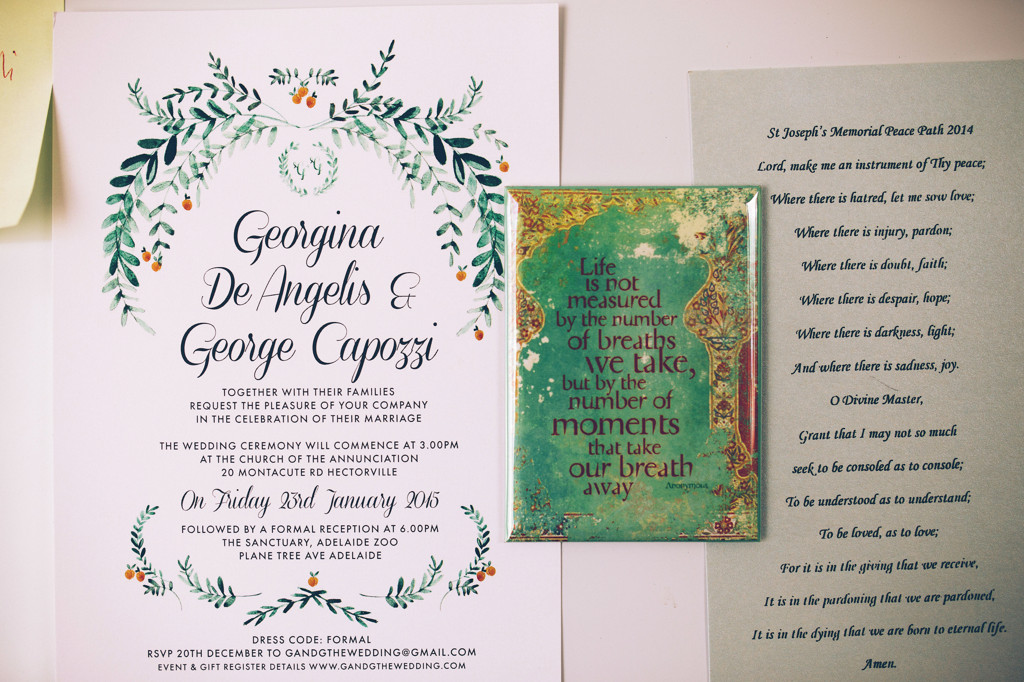 Georgina
De Angelis &
George Capozzi
TOGETHER WITH THEIR FAMILIES
REQUEST THE PLEASURE OF YOUR COMPANY
IN THE CELEBRATION OF THEIR MARRIAGE
THE WEDDING CEREMONY WILL COMMENCE AT 3.00PM
AT THE CHURCH OF THE ANNUNCIATION
20 MONTACUTE RD HECTORVILLE
On Friday 23rd January 2015
FOLLOWED BY A FORMAL RECEPTION AT 6.00PM
THE SANCTUARY, ADELAIDE ZOO
PLANE TREE AVE ADELAIDE
DRESS CODE: FORMAL
RSVP 20TH DECEMBER TO GANDGTHEWEDDING@GMAIL.COM
EVENT & GIFT REGISTER DETAILS WWW.GANDGTHEWEDDING.COM
Life
is not
measured
by the number
of breaths
we take,
but by the
number of
moments
that take
our breath
away
Anonymous
St Joseph's Memorial Peace Path 2014
Lord, make me an instrument of Thy peace;
Where there is hatred, let me sow love;
Where there is injury, pardon;
Where there is doubt, faith;
Where there is despair, hope;
Where there is darkness, light;
And where there is sadness, joy.
O Divine Master,
Grant that I may not so much
seek to be consoled as to console;
To be understood as to understand;
To be loved, as to love;
For it is in the giving that we receive,
It is in the pardoning that we are pardoned,
It is in the dying that we are born to eternal life.
Amen.